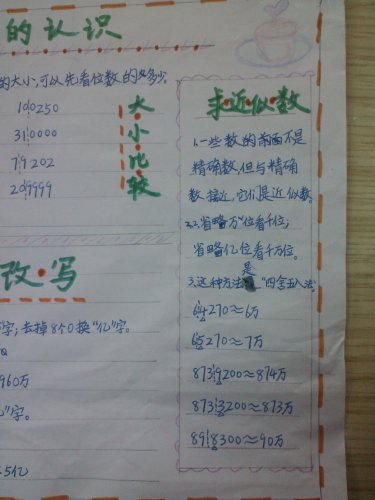 的认识
的大小,可以先看位数的多少。
10250
310000
79202
209999
大小比较
改·写
字;去掉8个0换"亿"字。
960万
亿"字。
.5亿
求近似数
1.一些数的前面不是
精确数,但与精确
数接近,它们是近似数。
2.省略万位看千位;
省略亿位看千万位。
3.这种方法是"四舍五入法
64270≈6万
65270≈7万
8739200≈874万
8733200≈873万
898300≈90万